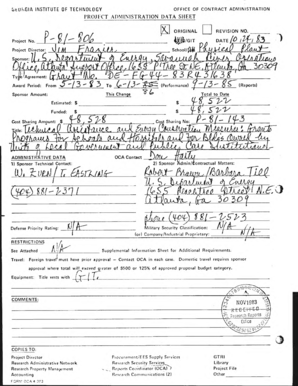 GEORGIA INSTITUTE OF TECHNOLOGY OFFICE OF CONTRACT ADMINISTRATION
PROJECT ADMINISTRATION DATA SHEET
X ORIGINAL REVISION NO.
Project No. P-81-806 DATE 10/28/83
Project Director: Jim Frazier School/Lab Physical Plant
Sponsor: U.S. Department of Energy, Savannah River Operations
Office, Atlanta Support Office, 1655 P'Tree St. N.E., Atlanta, GA 30309
Type Agreement: Grant No. DE-FG44-83R
Award Period: From 5-13-83 To (Performance) (Reports)
Sponsor Amount: This Change Total to Date
Estimated: $ $ 48,522
Funded: $ $ 48,522
Cost Sharing Amount: $ 48,528 Cost Sharing No: P-81-143
Title: Technical Assistance and Energy Conservation Measures: Grants
Programs for Schools and Hospitals and for Bldgs Owned by
Units of Local Government and Public Care Institutions
ADMINISTRATIVE DATA OCA Contact Don Hasty
1) Sponsor Technical Contact: 2) Sponsor Admin/Contractual Matters:
Robert Brown/Barbara
U.S. Department of Energy
(404) 881-2371 1655 Peachtree Street N.E.
Atlanta, GA 30309
phone (404) 881-2523
Defense Priority Rating: N/A Military Security Classification: N/A
(or) Company/Industrial Proprietary: N/A
RESTRICTIONS
See Attached N/A Supplemental Information Sheet for Additional Requirements.
Travel: Foreign travel must have prior approval – Contact OCA in each case. Domestic travel requires sponsor
approval where total will exceed greater of $500 or 125% of approved proposal budget category.
Equipment: Title vests with GIT
COMMENTS:
NOV 1983
RECEIVED
COPIES TO:
Project Director Procurement/EES Supply Services GTRI
Research Administrative Network Research Security Services Library
Research Property Management Reports Coordinator (OCA) Project File
Accounting Research Communications (2) Other